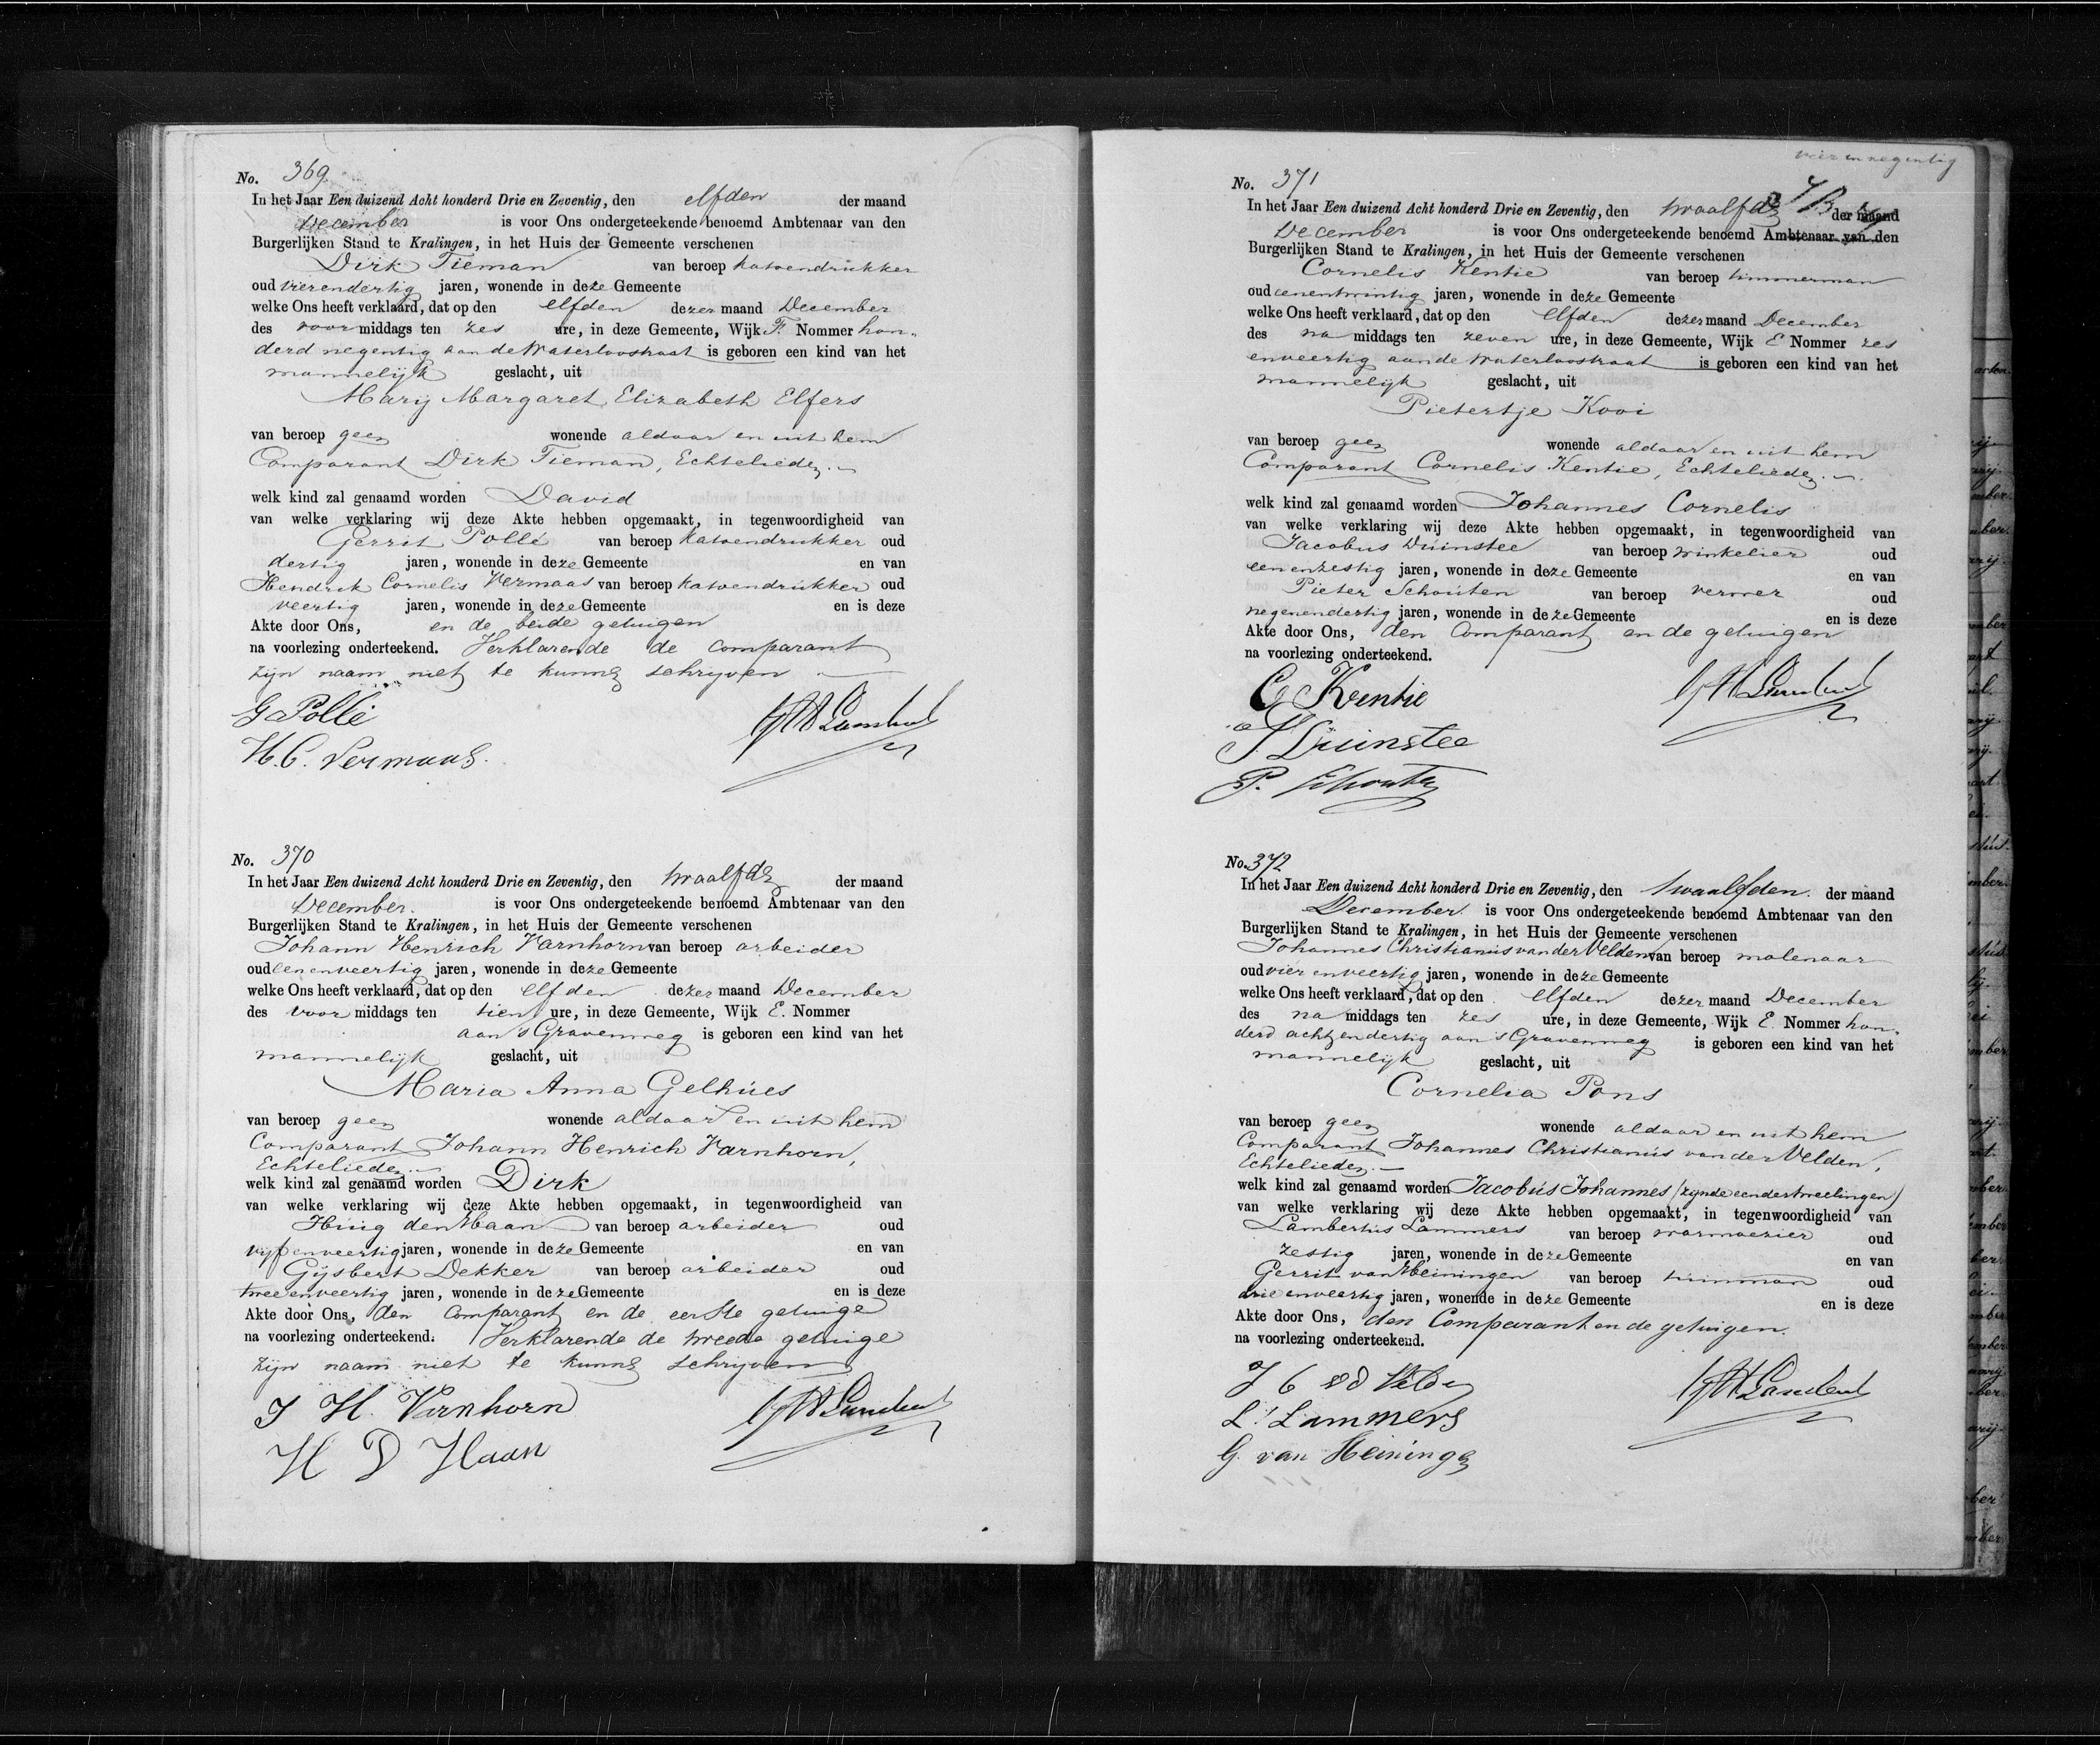 No. 369
In het Jaar Een duizend Acht honderd Drie en Zeventig, den elfden der maand
December is voor Ons ondergeteekende benoemd Ambtenaar van den
Burgerlijken Stand te Kralingen, in het Huis der Gemeente verschenen
Dirk Tieman van beroep katoendrukker
oud vierendertig jaren, wonende in deze Gemeente
welke Ons heeft verklaard, dat op den elfden dezer maand December
des voor middags ten zes ure, in deze Gemeente, Wijk F. Nommer hon-
derd negentig aan de Waterloostraat is geboren een kind van het
mannelijk geslacht, uit
Marij Margaret Elizabeth Elfers
van beroep geen wonende aldaar en uit hem
Comparant Dirk Tieman, Echtelieden.
welk kind zal genaamd worden David
van welke verklaring wij deze Akte hebben opgemaakt, in tegenwoordigheid van
Gerrit Pollé van beroep katoendrukker oud
dertig jaren, wonende in deze Gemeente en van
Hendrik Cornelis Vermaas van beroep katoendrukker oud
veertig jaren, wonende in deze Gemeente en is deze
Akte door Ons, en de beide getuigen
na voorlezing onderteekend. Verklarende de comparant
zijn naam niet te kunnen schrijven
G Polle
H. C. Vermaas.
No. 370
In het Jaar Een duizend Acht honderd Drie en Zeventig, den twaalfden der maand
December. is voor Ons ondergeteekende benoemd Ambtenaar van den
Burgerlijken Stand te Kralingen, in het Huis der Gemeente verschenen
Johann Henrich Varnhorn van beroep arbeider
oud eenenveertig jaren, wonende in deze Gemeente
welke Ons heeft verklaard, dat op den elfden dezer maand December
des voor middags ten tien ure, in deze Gemeente, Wijk E. Nommer
aan 's Gravenweg is geboren een kind van het
mannelijk geslacht, uit
Maria Anna Gelhues
van beroep geen wonende aldaar en uit hem
Comparant Johann Henrich Varnhorn,
Echtelieden.
welk kind zal genaamd worden Dirk
van welke verklaring wij deze Akte hebben opgemaakt, in tegenwoordigheid van
Huig den Haan van beroep arbeider oud
vijfenveertig jaren, wonende in deze Gemeente en van
Gijsbert Dekker van beroep arbeider oud
tweeenveertig jaren, wonende in deze Gemeente en is deze
Akte door Ons, den Comparant en de eerste getuige
na voorlezing onderteekend. Verklarende de tweede getuige
zijn naam niet te kunnen schrijven
J H. Varnhorn
H D Haan
vier en negentig
No. 371
In het Jaar Een duizend Acht honderd Drie en Zeventig, den twaalfden der maand
December is voor Ons ondergeteekende benoemd Ambtenaar van den
Burgerlijken Stand te Kralingen, in het Huis der Gemeente verschenen
Cornelis Kentie van beroep timmerman
oud eenentwintig jaren, wonende in deze Gemeente
welke Ons heeft verklaard, dat op den elfden dezer maand December
des na middags ten zeven ure, in deze Gemeente, Wijk E Nommer zes
enveertig aan de Waterloostraat is geboren een kind van het
mannelijk geslacht, uit
Pietertje Kooi
van beroep geen wonende aldaar en uit hem
Comparant Cornelis Kentie, Echtelieden.
welk kind zal genaamd worden Johannes Cornelis
van welke verklaring wij deze Akte hebben opgemaakt, in tegenwoordigheid van
Jacobus Duinstee van beroep winkelier oud
eenenzestig jaren, wonende in deze Gemeente en van
Pieter Schouten van beroep verwer oud
negenendertig jaren, wonende in deze Gemeente en is deze
Akte door Ons, den Comparant en de getuigen
na voorlezing onderteekend.
C Kentie
J Duinstee
P. Schouten
No. 372
In het Jaar Een duizend Acht honderd Drie en Zeventig, den twaalfden der maand
December. is voor Ons ondergeteekende benoemd Ambtenaar van den
Burgerlijken Stand te Kralingen, in het Huis der Gemeente verschenen
Johannes Christianus van der Velden van beroep molenaar
oud vierenveertig jaren, wonende in deze Gemeente
welke Ons heeft verklaard, dat op den elfden dezer maand December
des na middags ten zes ure, in deze Gemeente, Wijk E. Nommer hon-
derd achtendertig aan 's Gravenweg is geboren een kind van het
mannelijk geslacht, uit
Cornelia Pons
van beroep geen wonende aldaar en uit hem
Comparant Johannes Christianus van der Velden,
Echtelieden.
welk kind zal genaamd worden Jacobus Johannes (zijnde een der tweelingen)
van welke verklaring wij deze Akte hebben opgemaakt, in tegenwoordigheid van
Lambertus Lammers van beroep warmoezier oud
zestig jaren, wonende in deze Gemeente en van
Gerrit van Heiningen van beroep tuinman oud
drieenveertig jaren, wonende in deze Gemeente en is deze
Akte door Ons, den Comparant en de getuigen.
na voorlezing onderteekend.
J C vd Velden
L. Lammers
G. van Heiningen